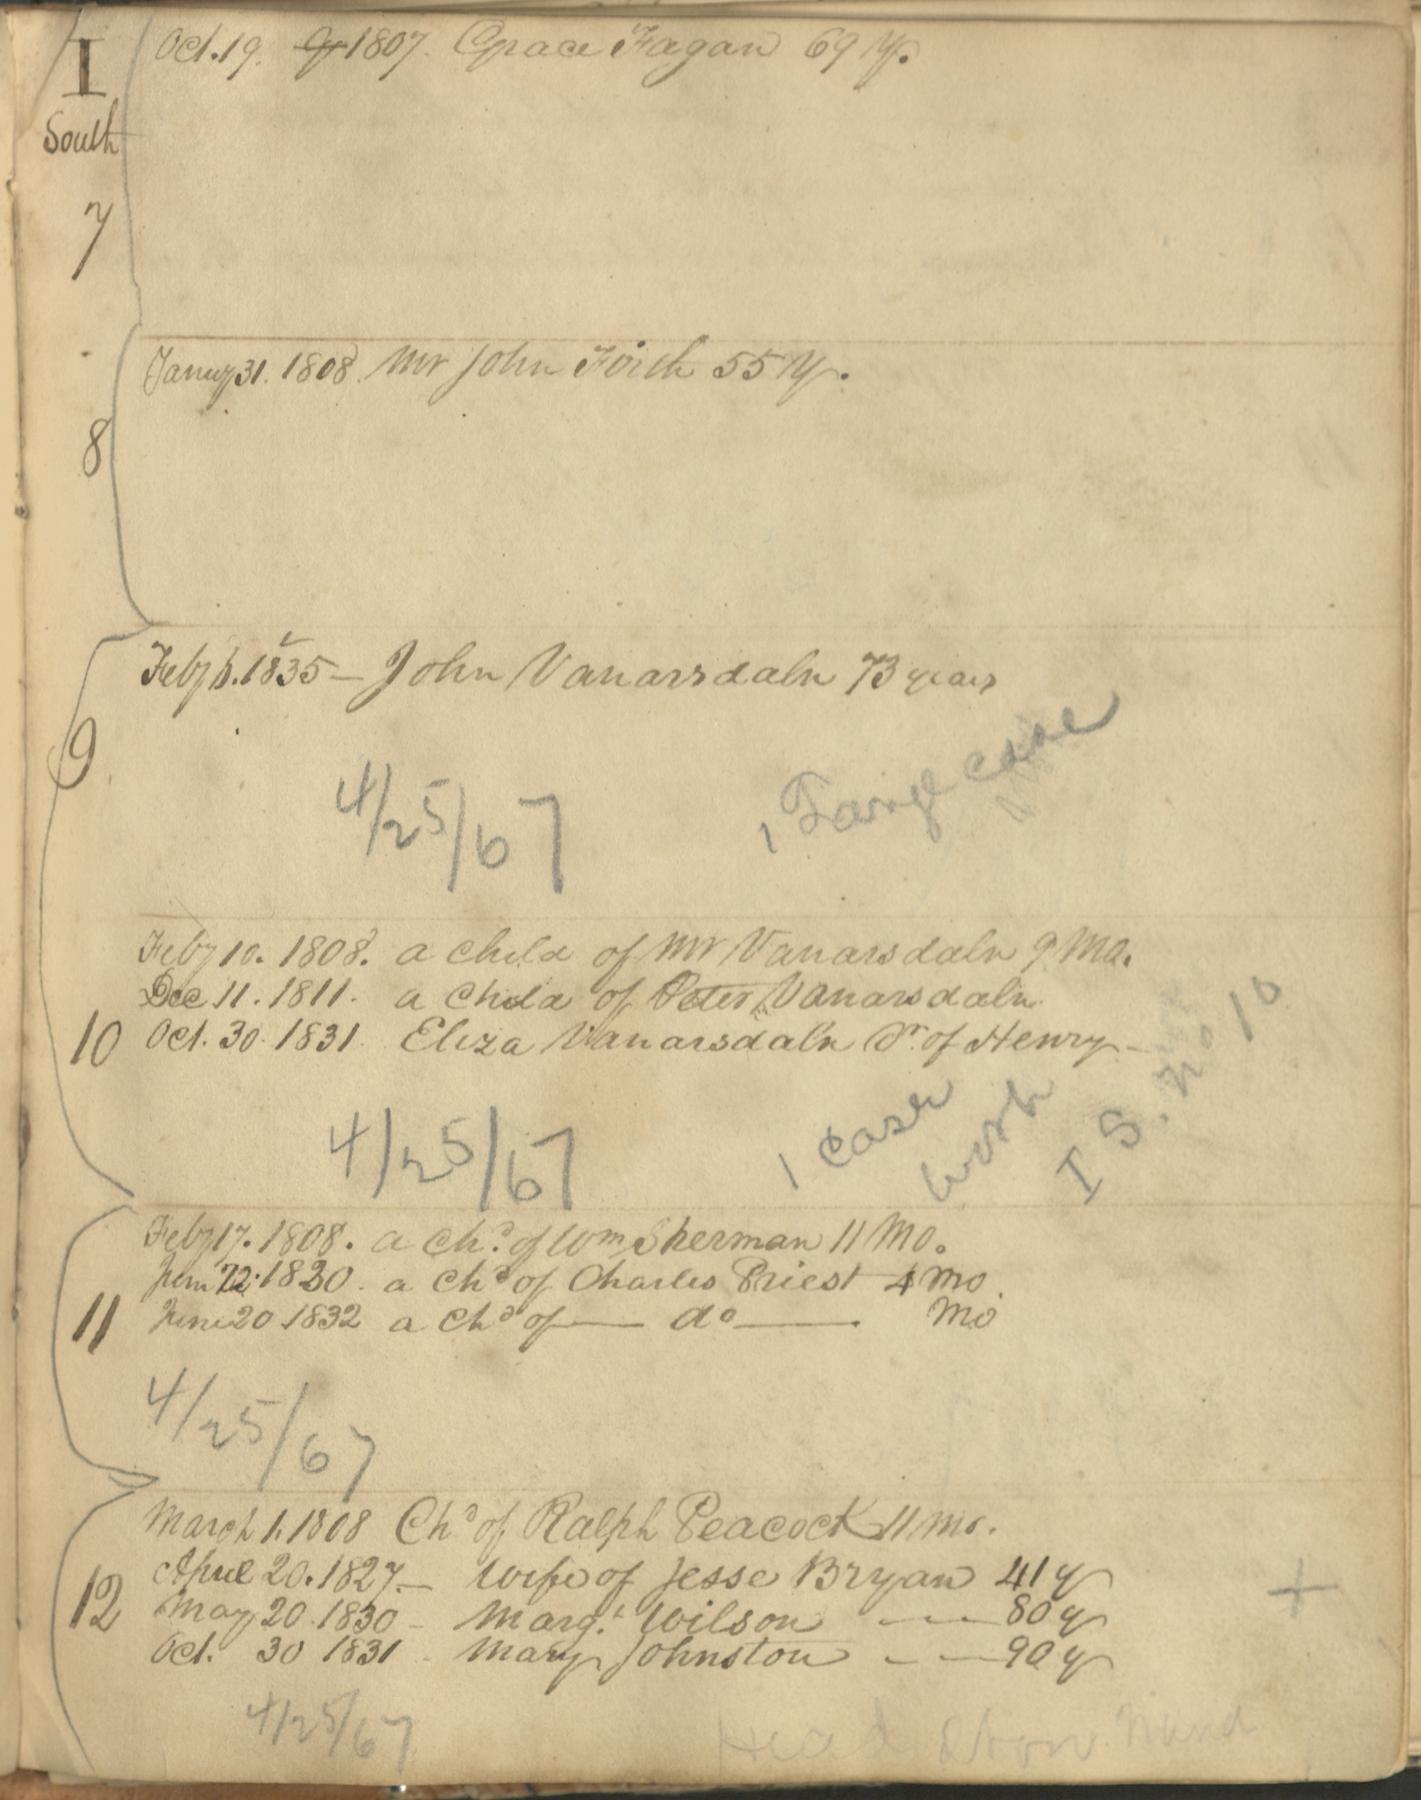 I
South
7
Oct. 19. 1807. Grace Fagan 69 y.
8
Januy 31. 1808. Mr John Foich 55 y.
9
Feby 1835 — John Vanarsdaln 73 years
4/25/67
1 Large case
10
Feby 10. 1808. a child of Mr Vanarsdaln 9 Mo.
Dec 11. 1811. a child of Peter Vanarsdaln
Oct. 30. 1831. Eliza Vanarsdaln Dr. of Henry —
4/25/67
1 case
I S. No 10
11
Feby 17. 1808. a chd. of Wm Sherman 11 Mo.
1820. a chd of Charles Priest 4 Mo.
June 20 1832 a chd of — do —. Mo
4/25/67
12
March 1. 1808 Chd of Ralph Peacock 11 mo.
April 20. 1827. — Wife of Jesse Bryan 41 y
May 20. 1830 — Margt. Wilson — — 80 y
Oct. 30 1831 - Mary Johnston — — 90 y
+
4/25/67
Head Stone